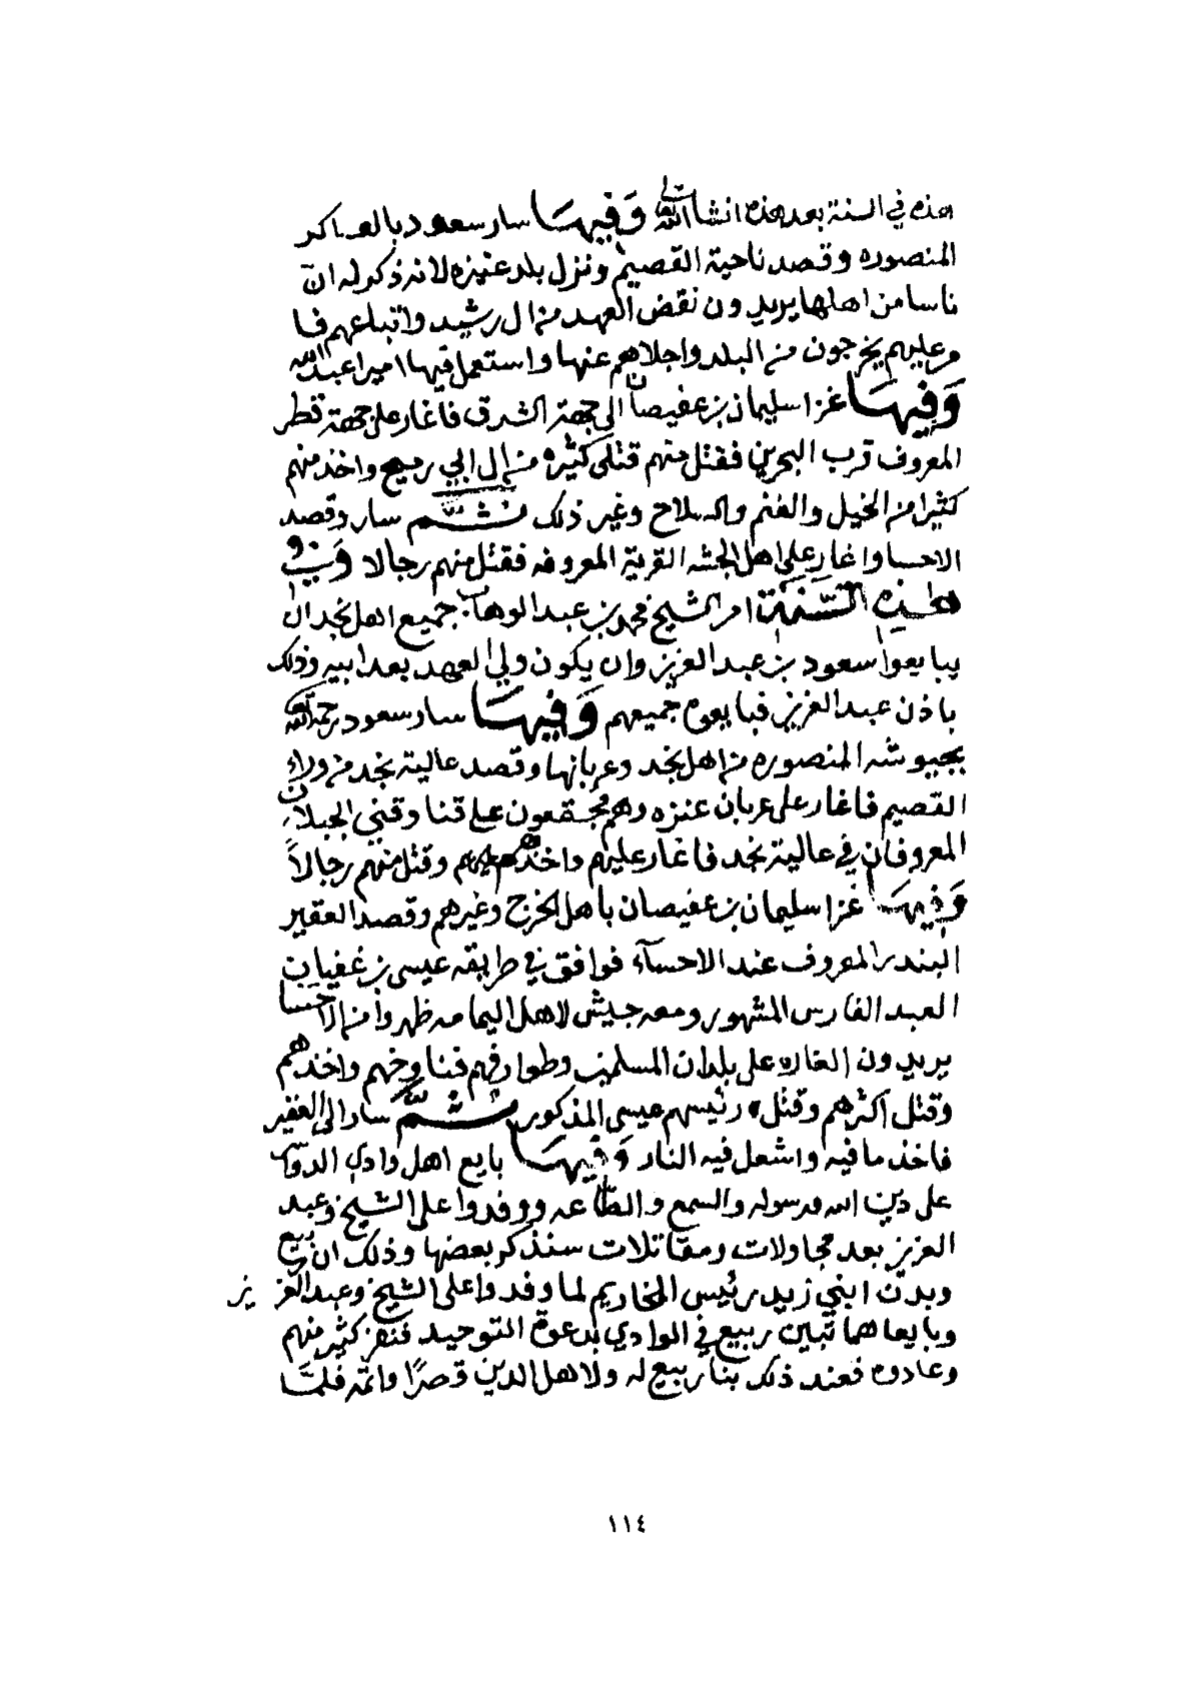 هذه في السنة بعد هذه انشاالله تعالى وَفيهَا سار سعود بالعساكر
المنصوره وقصد ناحية القصيم ونزل بلد عنيزه لانه ذكر له ان
ناسا من اهلها يريدون نقض العهد من ال رشيد واتباعهم فا
مر عليهم يخرجون من البلد واجلاهم عنها واستعمل فيها اميرا عبدالله
وَفيهَا غزا سليمان بن عفيصان الى جهة الشرق فاغار على جهة قطر
المعروف قرب البحرين فقتل منهم قتلى كثيره من ال ابي رميح واخذ منهم
كثيرا من الخيل والغنم والسلاح وغير ذلك ثم سار وقصد
الاحسا واغار على اهل الجشه القرية المعروفه فقتل منهم رجالا وَفي
هذِه السَّنَة امر الشيخ محمد بن عبد الوهاب جميع اهل نجد ان
يبايعوا سعود بن عبد العزيز وان يكون ولي العهد بعد ابيه وذلك
باذن عبد العزيز فبايعوه جميعهم وَفيهَا سار سعود رحمه الله
بجيوشه المنصوره من اهل نجد وعربانها وقصد عالية نجد من وراء
القصيم فاغار على عربان عنزه وهم مجتمعون على قنا وقني الجبلان
المعروفان في عالية نجد فاغار عليهم واخذهم وقتل منهم رجالاً
وَفيهَا غزا سليمان بن عفيصان باهل الخرج وغيرهم وقصد العقير
البندر المعروف عند الاحسآء فوافق في طريقه عيسى بن غفيان
العبد الفارس المشهور ومعه جيش لاهل اليمامه ظهروا من الاحسا
يريدون الغاره على بلدان المسلمين وطوارفهم فناوخهم واخذهم
وقتل اكثرهم وقتل رئيسهم عيسى المذكور ثم سار الى العقير
فاخذ ما فيه واشعل فيه النار وَفيهَا بايع اهل وادي الدواسر
على دين الله ورسوله والسمع والطاعه ووفدوا على الشيخ وعبد
العزيز بعد مجاولات ومقاتلات سنذكر بعضها وذلك ان ربيع
وبدن ابني زيد رئيس المخاريم لما وفدوا على الشيخ وعبدالعزيز
وبايعاهما تبين ربيع في الوادي بدعوة التوحيد فنفر كثير منهم
وعادوه فعند ذلك بنا ربيع له ولاهل الدين قصرًا واتمه فلمَّا
١١٤